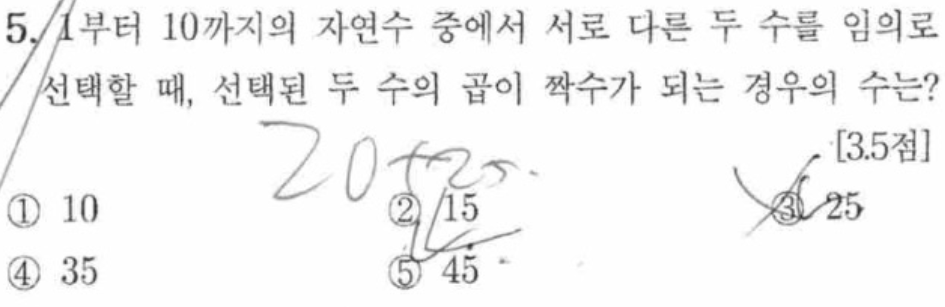 5. 1부터 10까지의 자연수 중에서 서로 다른 두 수를 임의로
선택할 때, 선택된 두 수의 곱이 짝수가 되는 경우의 수는?
[3.5점]
20+25.
① 10 ② 15 ③ 25
④ 35 ⑤ 45